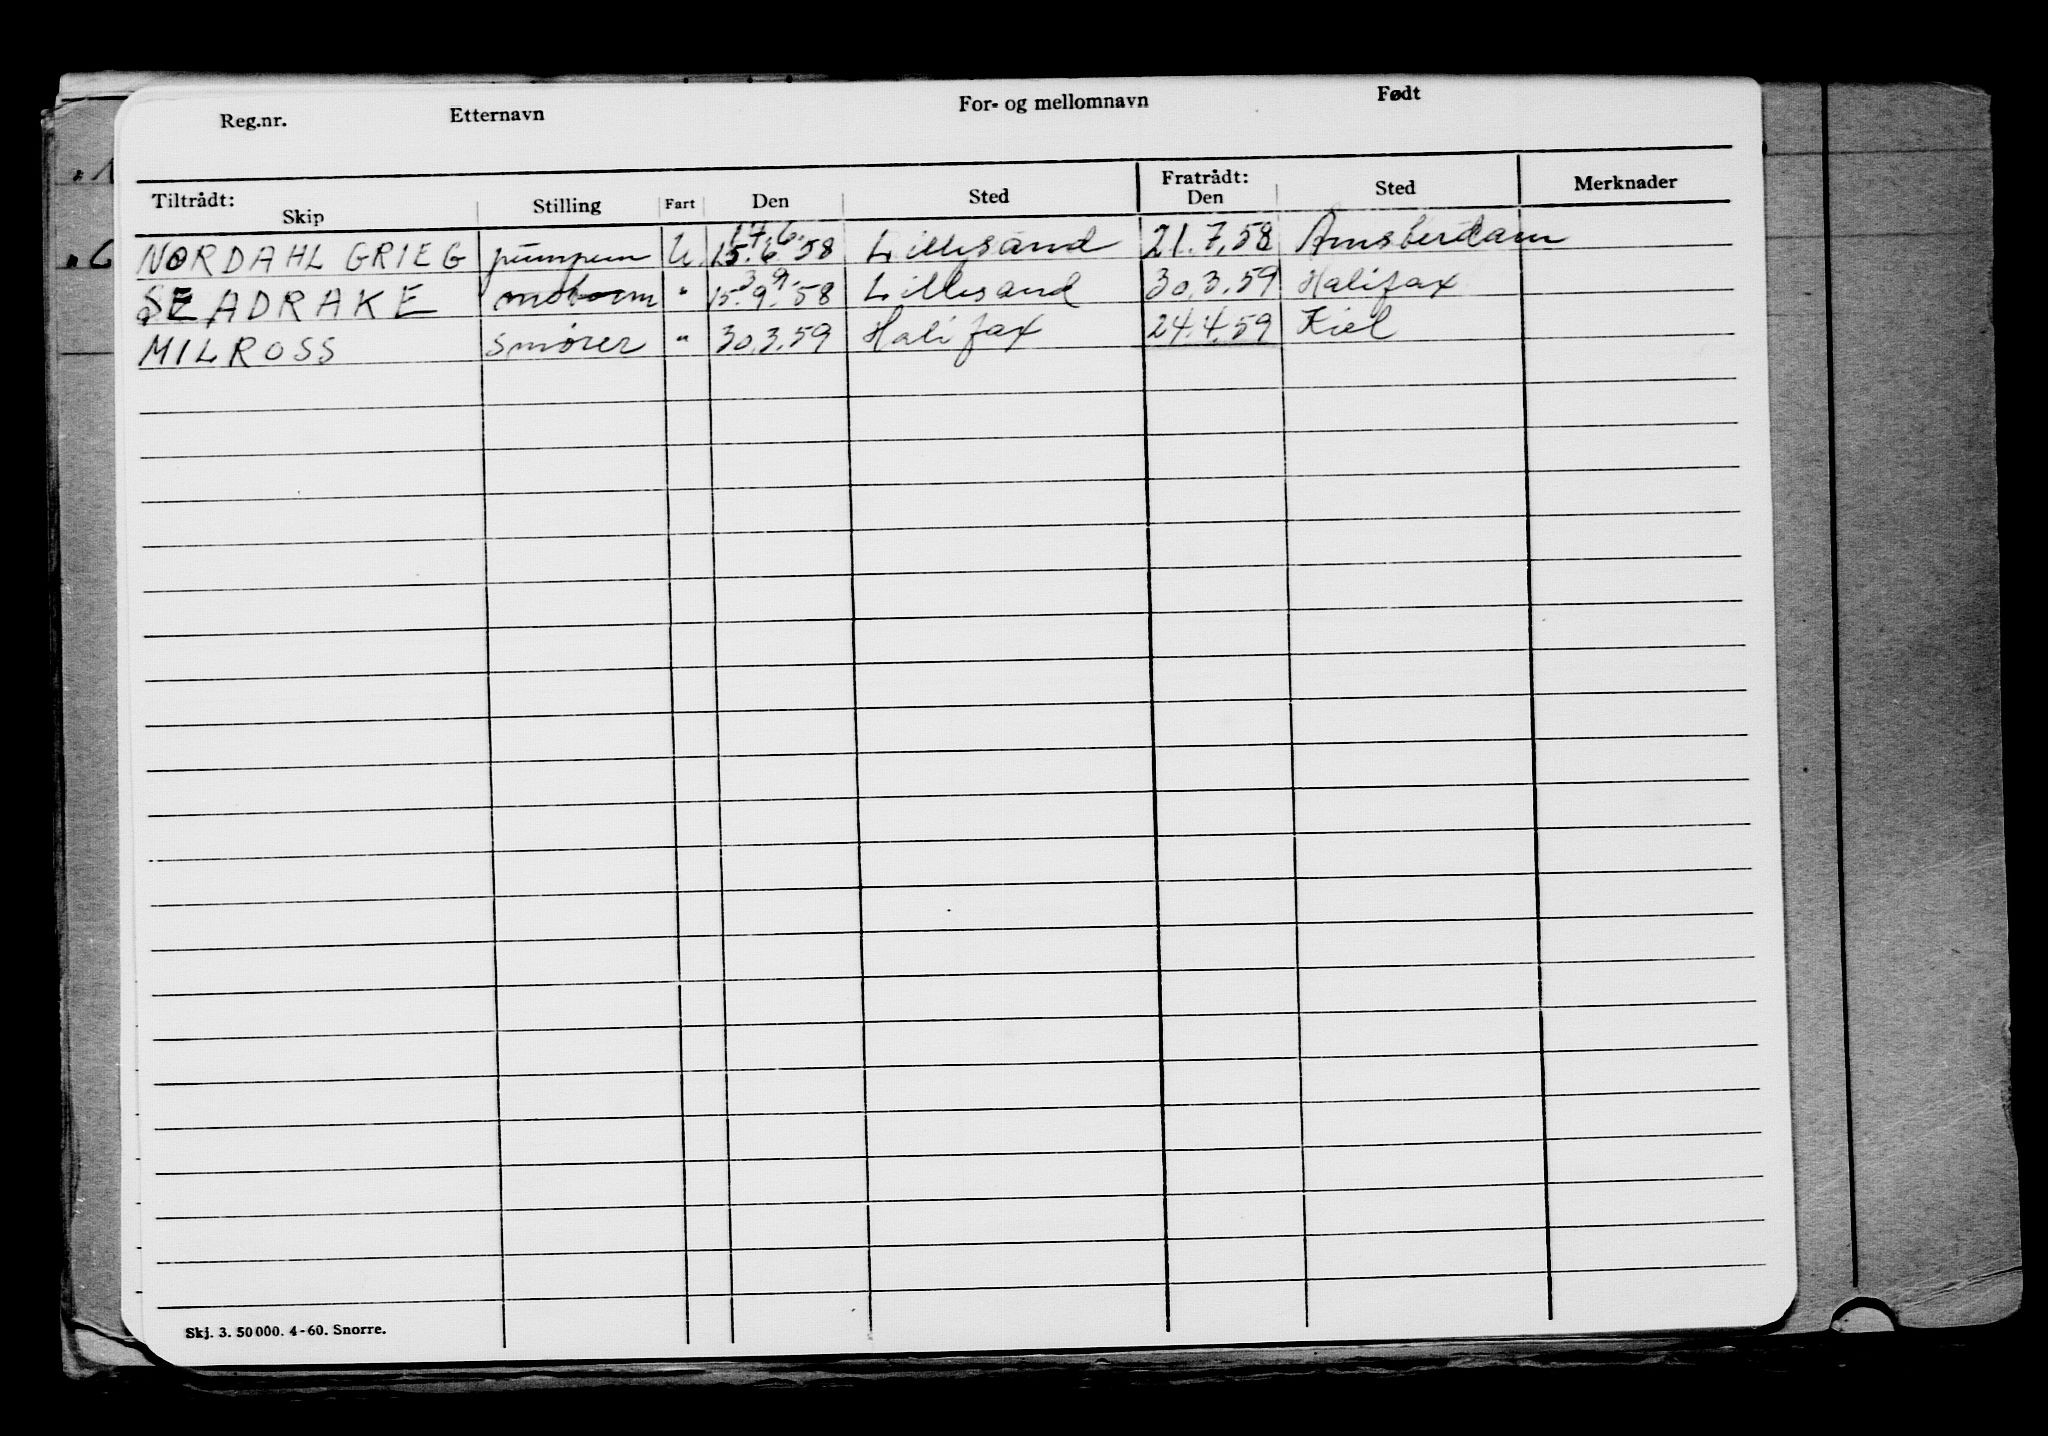 Reg.nr. Etternavn For- og mellomnavn Født
Tiltrådt: Fratrådt:
Skip Stilling Fart Den Sted Den Sted Merknader
14.6.
NORDAHL GRIEG pumpem U. 15.6.58 Lillesand 21.7.58 Amsterdam
3.9.
SEADRAKE motorm " 15.9.58 Lillesand 30.3.59 Halifax
MILROSS smører " 30.3.59 Halifax 24.4.59 Kiel
Skj. 3. 50000. 4-60. Snorre.